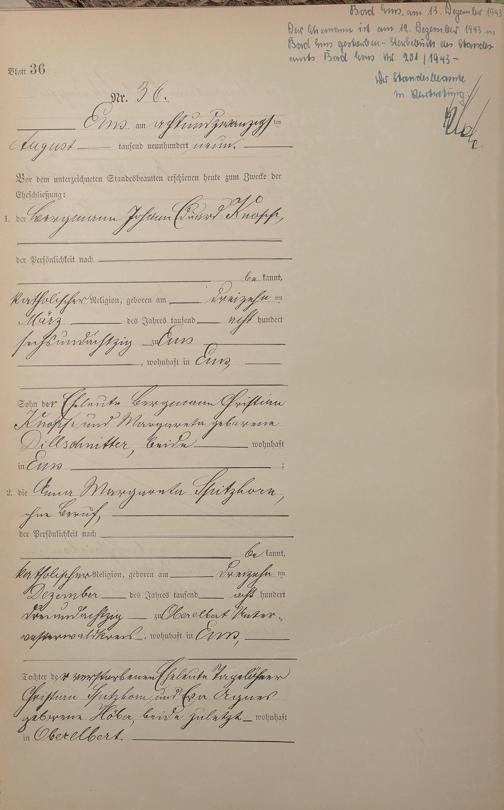 Bad Ems, am 13. Dezember 1943
Der Ehemann ist am 12. Dezember 1943 in
Bad Ems gestorben - Sterbebuch des Standes-
amts Bad Ems Nr. 201/1943 -
Der Standesbeamte
in Vertretung:
Blatt 36
Nr. 36.
Ems am achtundzwanzigsten
August tausend neunhundert neun.
Vor dem unterzeichneten Standesbeamten erschienen heute zum Zwecke der
Eheschließung:
1. der Bergmann Johann Eduard
der Persönlichkeit nach
be kannt,
katholischer Religion, geboren am dreizehnten
März des Jahres tausend acht hundert
sechsundachtzig zu Ems
, wohnhaft in Ems
Sohn der Eheleute Bergmann Christian
und Margareta geborene
Dillschnitter, beide wohnhaft
in Ems ;
2. die Anna Margareta Spitzhorn,
ohne Beruf,
der Persönlichkeit nach
be kannt,
katholischer Religion, geboren am dreizehnten
Dezember des Jahres tausend acht hundert
dreiundachtzig zu Oberelbert Unter-
westerwaldkreis, wohnhaft in Ems,
Tochter der verstorbenen Eheleute Tagelöhner
Christian Spitzhorn und Eva Agnes
geborene beide zuletzt wohnhaft
in Oberelbert.